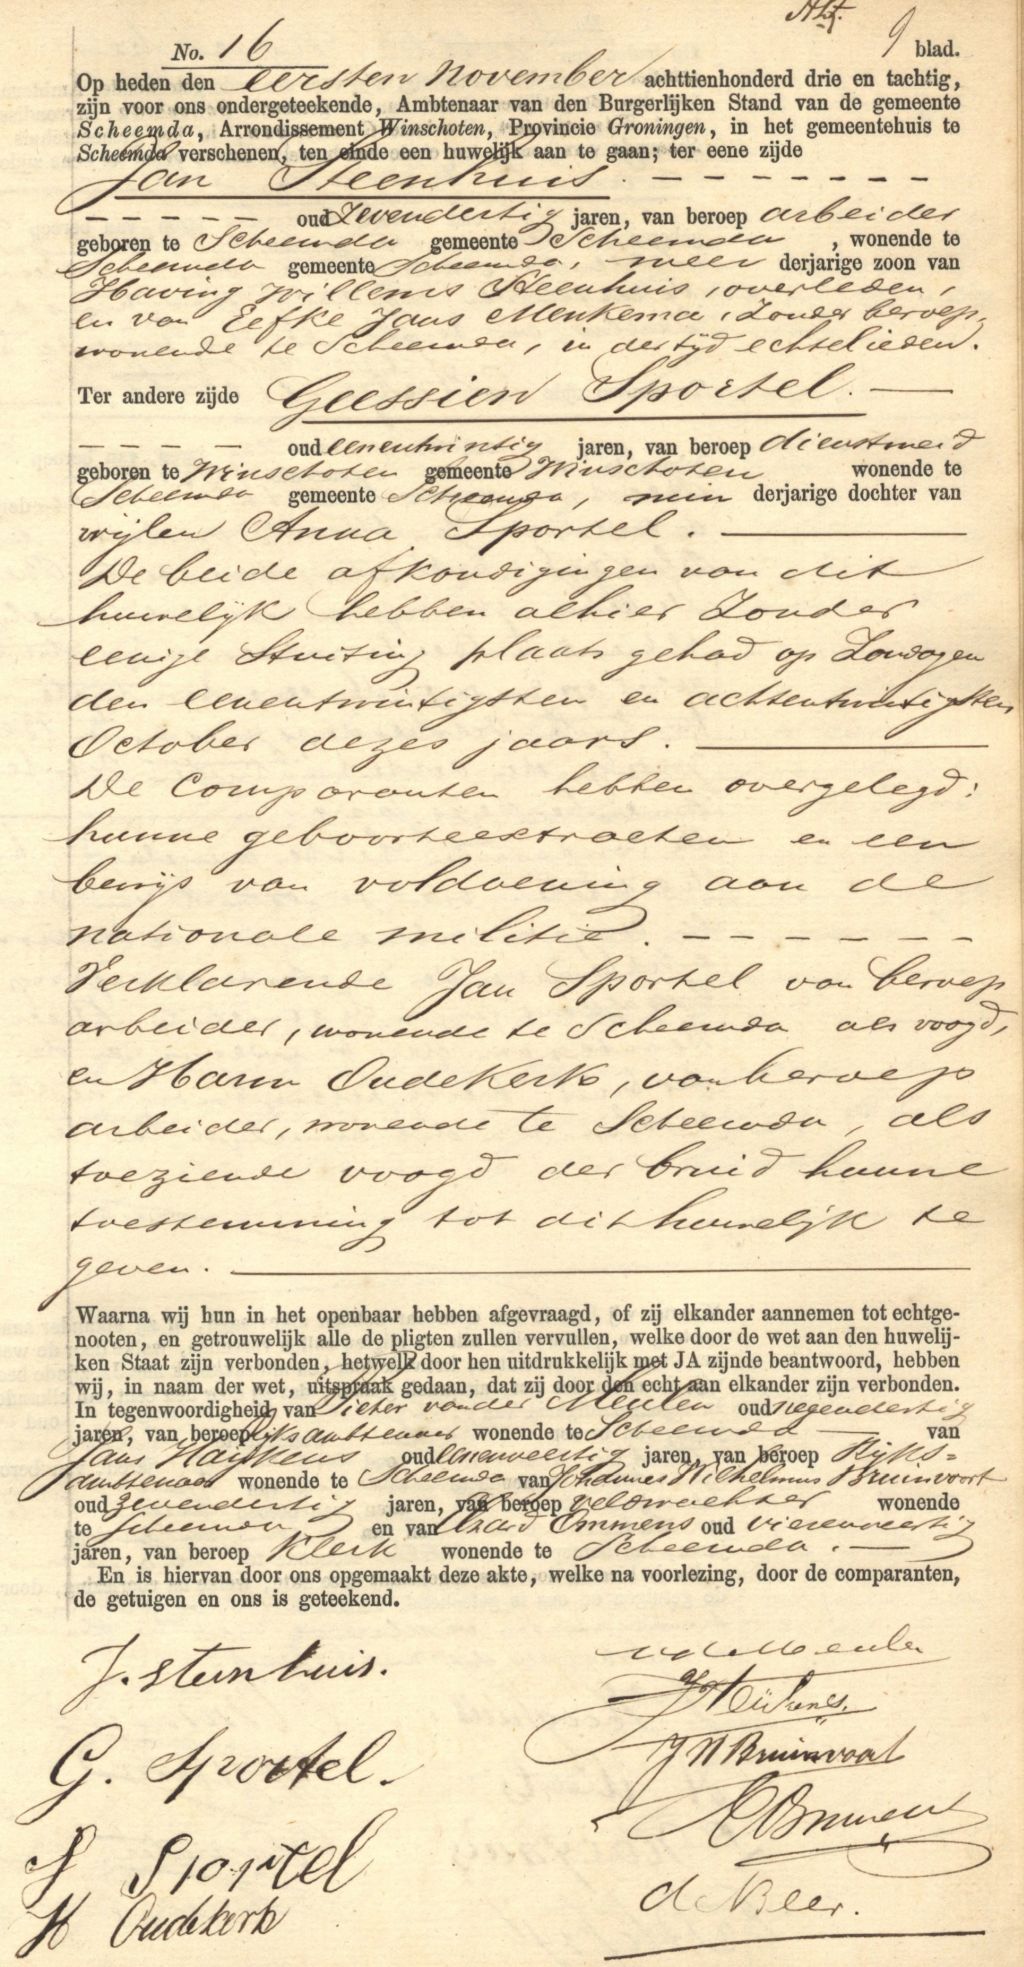 9 blad.
No. 16
Op heden den eersten November achttienhonderd drie en tachtig,
zijn voor ons ondergeteekende, Ambtenaar van den Burgerlijken Stand van de gemeente
Scheemda, Arrondissement Winschoten, Provincie Groningen, in het gemeentehuis te
Scheemda verschenen, ten einde een huwelijk aan te gaan; ter eene zijde
Jan Steenhuis. – – – – – – –
– – – – – oud zevendertig jaren, van beroep arbeider
geboren te Scheemda gemeente Scheemda, wonende te
Scheemda gemeente Scheemda, meer derjarige zoon van
Having Willems Steenhuis, overleden,
en van Eefke Jans Menkema, zonder beroep,
wonende te Scheemda, in der tijd echtelieden.
Ter andere zijde Geessien Sportel. —
– – – – – oud eenentwintig jaren, van beroep dienstmeid
geboren te Winschoten gemeente Winschoten wonende te
Scheemda gemeente Scheemda, min derjarige dochter van
wijlen Anna Sportel. —
De beide afkondigingen van dit
huwelijk hebben alhier zonder
eenige stuiting plaats gehad op Zondagen
den eenentwintigsten en achtentwintigsten
October dezes jaars. —
De Comparanten hebben overgelegd:
hunne geboorteextracten en een
bewijs van voldoening aan de
nationale militie. – – – – – –
Verklarende Jan Sportel van beroep
arbeider, wonende te Scheemda als voogd,
en Harm Oudekerk, van beroep
arbeider, wonende te Scheemda, als
toeziende voogd der bruid hunne
toestemming tot dit huwelijk te
geven. —
Waarna wij hun in het openbaar hebben afgevraagd, of zij elkander aannemen tot echtge-
nooten, en getrouwelijk alle de pligten zullen vervullen, welke door de wet aan den huwelij-
ken Staat zijn verbonden, hetwelk door hen uitdrukkelijk met JA zijnde beantwoord, hebben
wij, in naam der wet, uitspraak gedaan, dat zij door den echt aan elkander zijn verbonden.
In tegenwoordigheid van Pieter van der Meulen oud negendertig
jaren, van beroep rijksambtenaar wonende te Scheemda — van
Jans Haijkens oud eenenveertig jaren, van beroep Rijks-
ambtenaar wonende te Scheemda van Johannes Wilhelmus Bruinvoort
oud zevendertig jaren, van beroep veldwachter wonende
te Scheemda en van Edzard Ommens oud vierenveertig
jaren, van beroep Klerk wonende te Scheemda. —
En is hiervan door ons opgemaakt deze akte, welke na voorlezing, door de comparanten,
de getuigen en ons is geteekend.
J. Steenhuis.
vdMeulen
G. Sportel.
JWBruinvoort
J Sportel
EOmmens
H Oudekerk
de Beer.